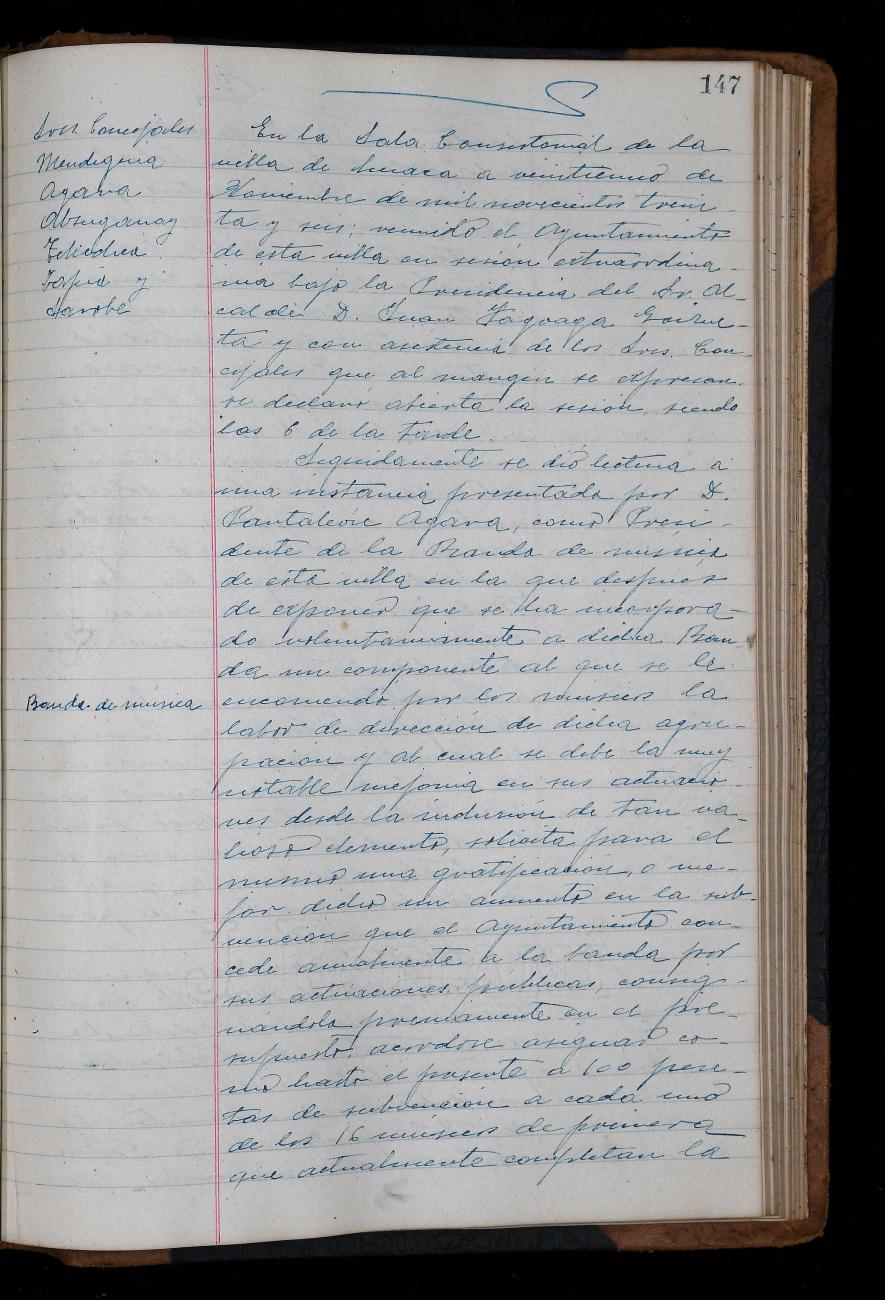 147
Sres. Concejales
Mendiguia
Agara
Telledchea
Tapia y
Jarobe
En la Sala Consistorial de la
villa de Lesaca a veintiuno de
Noviembre de mil novecientos trein-
ta y seis; reunido el Ayuntamiento
de esta villa en sesión extraordina-
ria bajo la Presidencia del Sr. Al-
calde D. Juan Yagoaga Goizue-
ta y con asistencia de los Sres. Con-
cejales que al margen se expresan.
se declaró abierta la sesión, siendo
las 6 de la tarde.
Seguidamente se dió lectura a
una instancia presentada por D.
Pantaleón Agara, como Presi-
dente de la Banda de música
de esta villa en la que despues
de exponer que se ha incorpora-
do voluntariamente a dicha Ban-
da un componente al que se le
Banda de música
encomendo por los musicos la
labor de dirección de dicha agru-
pación y al cual se debe la muy
notable mejoria en sus actuacio-
nes desde la inclusión de tan va-
lioso elemento, solicita para el
mismo una gratificación, o me-
jor dicho un aumento en la sub-
vencion que el Ayuntamiento con-
cede anualmente a la banda por
sus actuaciones públicas, consig-
nándola previamente en el pre-
supuesto, acordose asignar co-
mo hasta el presente a 100 pese-
tas de subvención a cada uno
de los 16 musicos de primera
que actualmente completan la